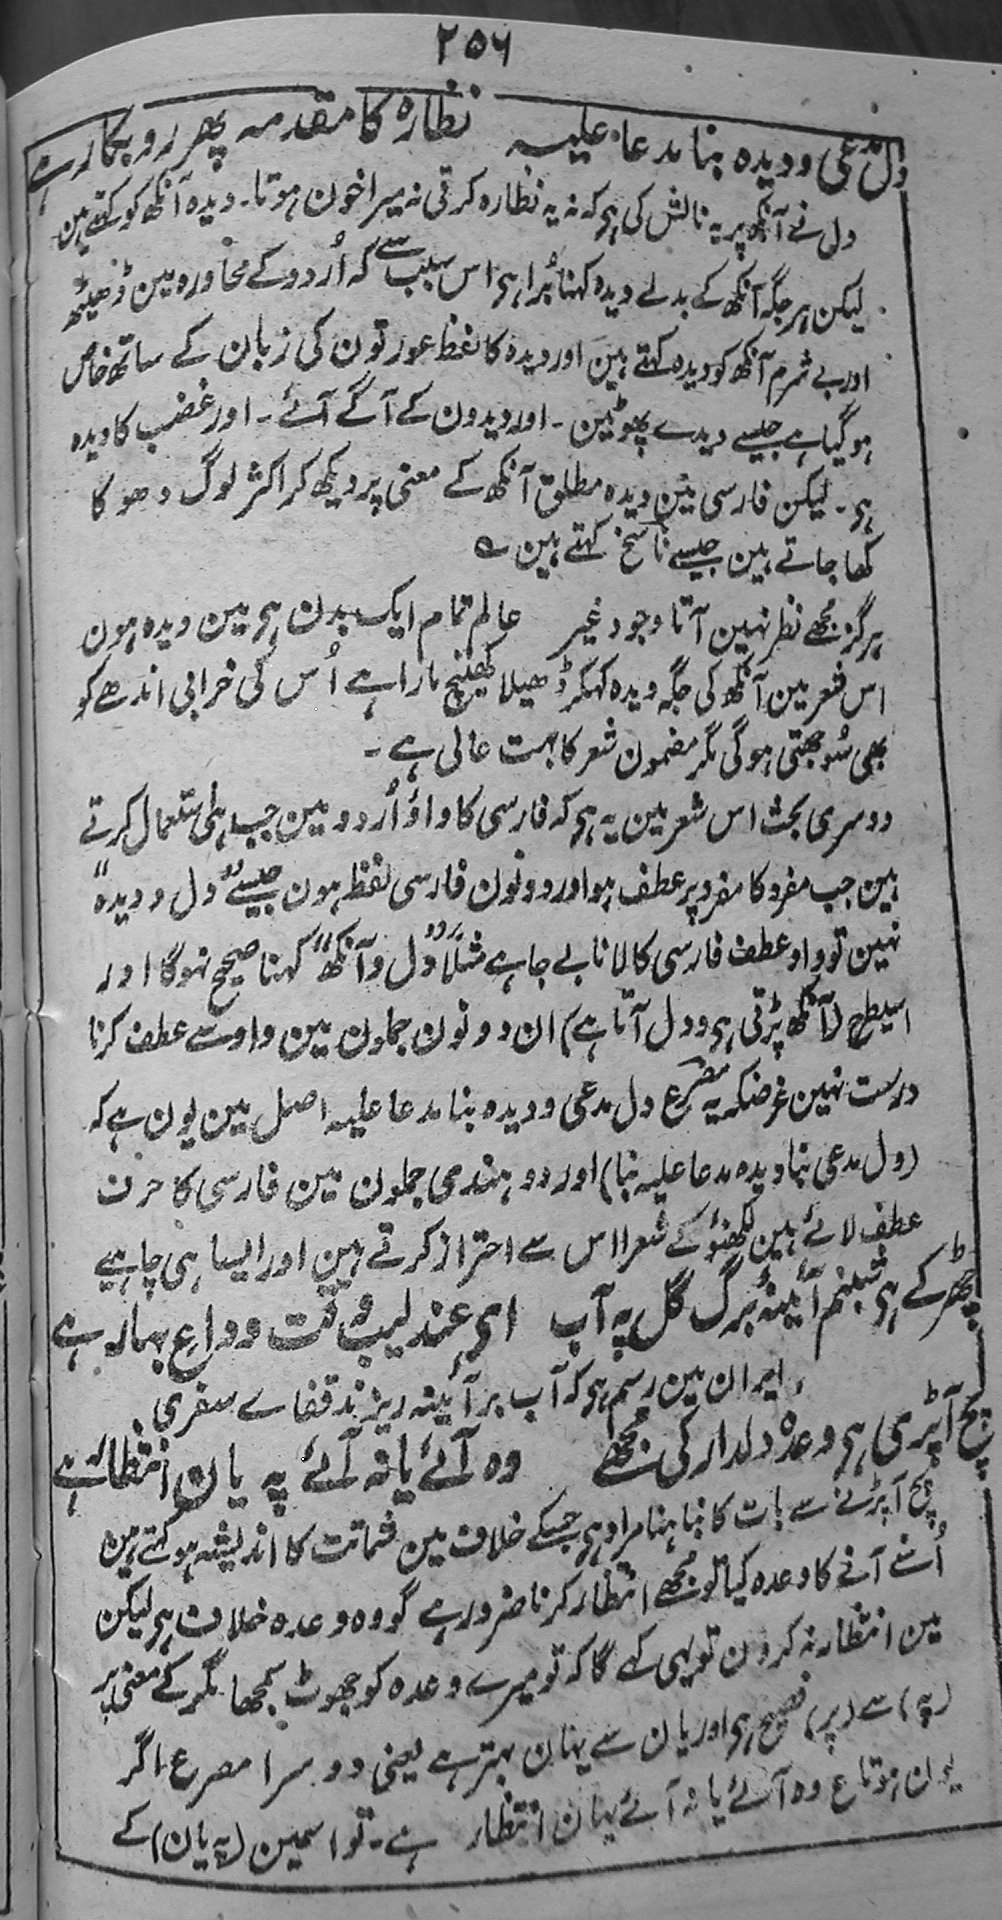 ۲۵۶
دل مدعی و دیدہ بنا مدعا علیہ نظارہ کا مقدمہ پھر روبکار ہے
دل نے آنکھ پر یہ نالش کی ہی کہ نہ یہ نظارہ کرتی نہ میرا خون ہوتا۔ دیدہ آنکھ کو کہتے ہین
لیکن ہر جگہ آنکھ کے بدلے دیدہ کہنا بُرا ہی اس سبب سے کہ اُردو کے محاورہ مین ڈھیٹھ
اور بے شرم آنکھ کو دیدہ کہتے ہین اور دیدہ کا لفظ عورتون کی زبان کے ساتھ خاص
ہوگیا ہے جیسے دیدے پھوٹین۔ اور دیدون کے آگے آئے۔ اور غضب کا دیدہ
ہی۔ لیکن فارسی مین دیدہ مطلق آنکھ کے معنی پر دیکھ کر اکثر لوگ دھوکا
کھا جاتے ہین جیسے ناسخ کہتے ہین ؎
ہرگز مجھے نظر نہین آتا وجود غیر عالم تمام ایک بدن ہی مین دیدہ ہون
اس شعر مین آنکھ کی جگہ دیدہ کہکر ڈھیلا کھینچ مارا ہے اُس کی خرابی اندھے کو
بھی سُوجھتی ہوگی مگر مضمون شعر کا بہت عالی ہے۔
دوسری بحث اس شعر مین یہ ہی کہ فارسی کا واؤ اُردو مین جب ہی استعمال کرتے
ہین جب مفرد کا مفرد پر عطف ہو اور دونون فارسی لفظ ہون جیسے ”دل و دیدہ“
نہین تو واو عطف فارسی کا لانا بے جا ہے مثلاً ”دل و آنکھ“ کہنا صحیح نہوگا اور
اسیطرح (آنکھ پڑتی ہی و دل آتا ہے) ان دونون جملون مین واو سے عطف کرنا
درست نہین غرضکہ یہ مصرع دل مدعی و دیدہ بنا مدعا علیہ اصل مین یون ہے کہ
(دل مدعی بنا و دیدہ مدعا علیہ بنا) اور دو ہندی جملون مین فارسی کا حرف
عطف لائے ہین لکھنؤ کے شعرا اس سے احتراز کرتے ہین اور ایسا ہی چاہیے
چھڑکے ہی شبنم آئینۂ برگ گل پہ آب ای عندلیب وقت وداع بہار ہے
ایران مین رسم ہی کہ آب بر آئینہ ریزند قفاے سفری
پچ آپڑی ہی وعدۂ دلدار کی مجھے وہ آئے یا نہ آئے پہ یان انتظار ہے
پچ آپڑنے سے بات کا نباہنا مراد ہی جسکے خلاف مین شماتت کا اندیشہ ہو کہتے ہین
اُسنے آنے کا وعدہ کیا تو مجھے انتظار کرنا ضرور ہے گو وہ وعدہ خلاف ہی لیکن
مین انتظار نہ کرون تو یہی کہے گا کہ تو میرے وعدہ کو جھوٹ سمجھا مگر کے معنی پر
(پہ) سے (پر) فصیح ہی اور یان سے یہان بہتر ہے یعنی دوسرا مصرع اگر
یون ہوتا ع وہ آئے یا نہ آئے یہان انتظار ہے۔ تو اسمین (پہ یان) کے